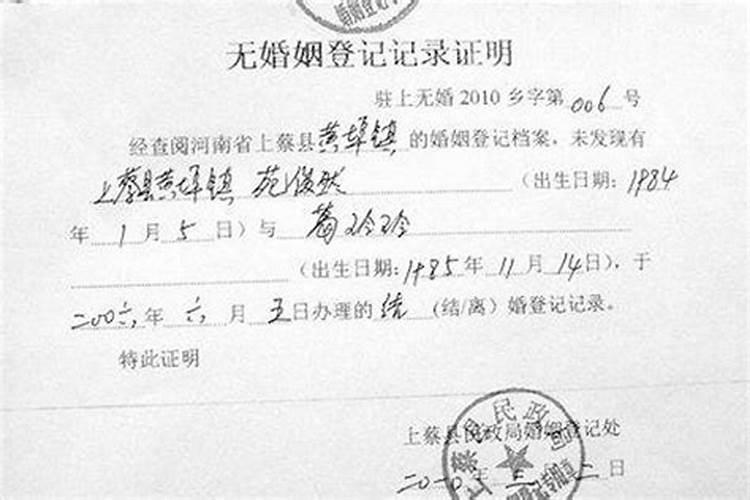 婚姻登记
无婚姻登记记录证明
驻上无婚 2010 乡字第 006 号
经查阅河南省上蔡县黄埠镇的婚姻登记档案，未发现有
上蔡县黄埠镇 苑俊然（出生日期：1984
年 1 月 5 日）与 葛玲玲
（出生日期：1985 年 11 月 14 日），于
二00六年 六 月 五日办理的 结（结/离）婚登记记录。
特此证明
上蔡县民政局婚姻登记处
二〇一〇年 三 二日